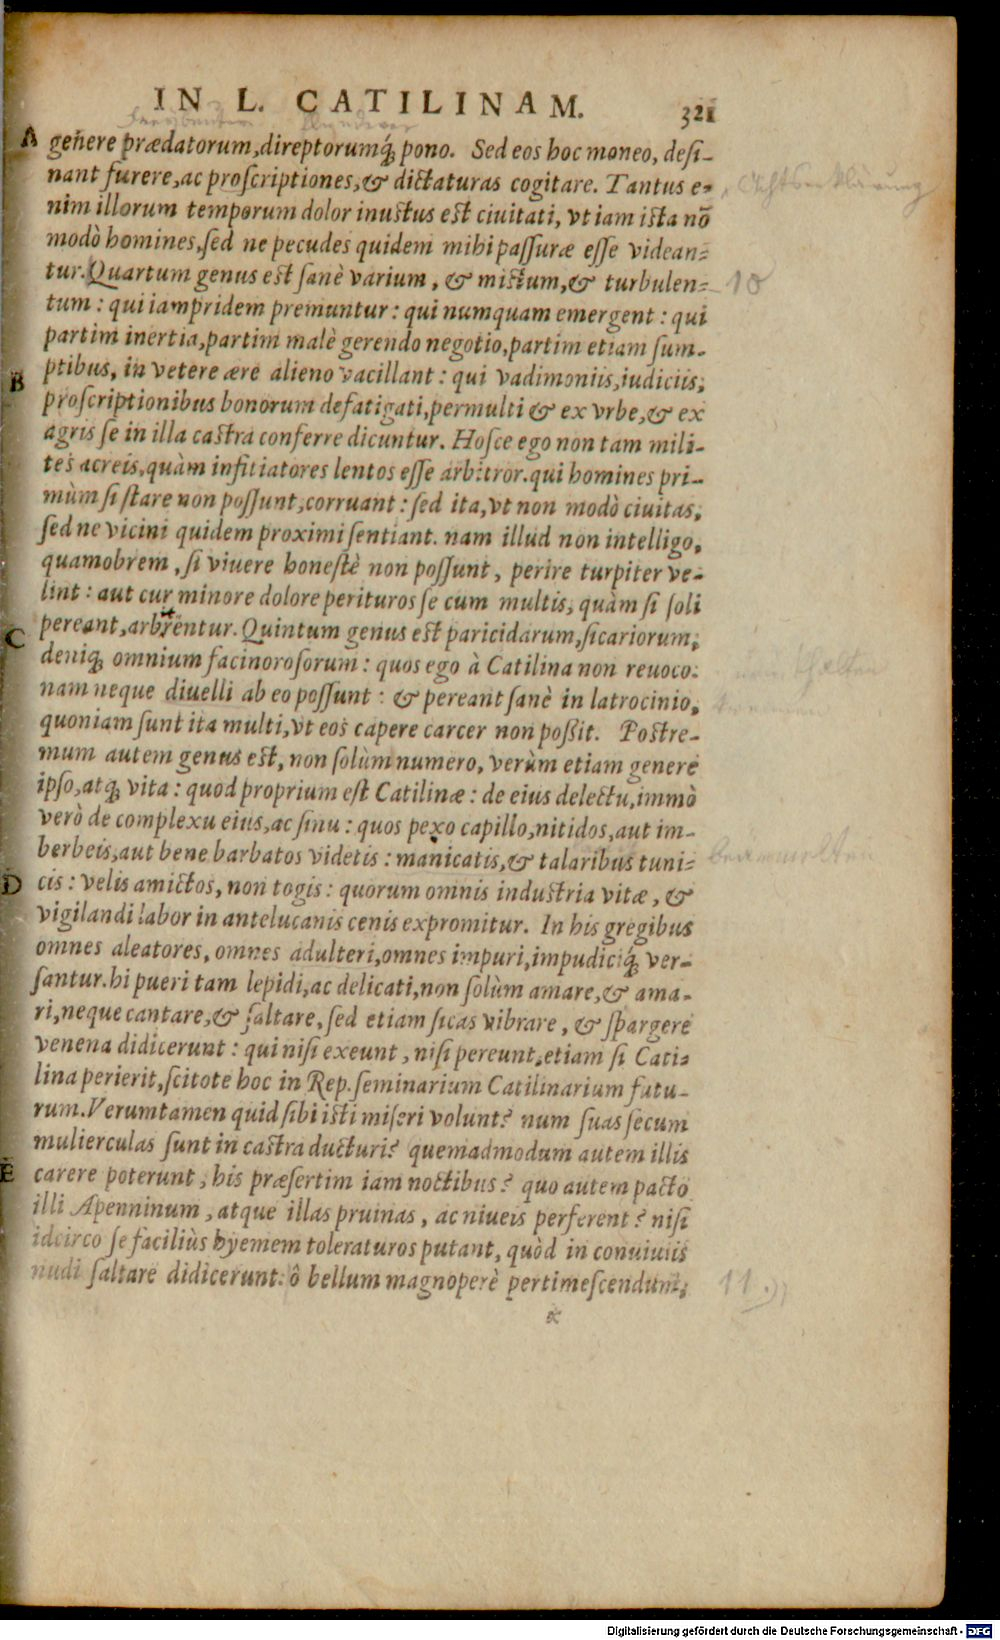 IN L. CATILINAM. 321
A genere prædatorum, direptorumq́; pono. Sed eos hoc moneo, desi-
nant furere, ac proscriptiones, & dictaturas cogitare. Tantus e-
nim illorum temporum dolor inustus est ciuitati, vt iam ista nõ
modò homines, sed ne pecudes quidem mihi passuræ esse videan-
tur. Quartum genus est sanè varium, & mictum, & turbulen- 10
tum: qui iampridem premuntur: qui numquam emergent: qui
partim inertia, partim malè gerendo negotio, partim etiam sum-
B ptibus, in vetere ære alieno vacillant: qui vadimoniis, iudiciis,
proscriptionibus bonorum defatigati, permulti & ex vrbe, & ex
agris se in illa castra conferre dicuntur. Hosce ego non tam mili-
tes acreis, quàm infitiatores lentos esse arbitror. qui homines pri-
mùm si stare non possunt, corruant: sed ita, vt non modò ciuitas,
sed ne vicini quidem proximi sentiant. nam illud non intelligo,
quamobrem, si viuere honestè non possunt, perire turpiter ve-
lint: aut cur minore dolore perituros se cum multis, quàm si soli
C pereant, arbitrentur. Quintum genus est paricidarum, sicariorum,
deniq; omnium facinorosorum: quos ego à Catilina non reuoco.
nam neque diuelli ab eo possunt: & pereant sanè in latrocinio,
quoniam sunt ita multi, vt eos capere carcer non possit. Postre-
mum autem genus est, non solùm numero, verùm etiam genere
ipso, atq; vita: quod proprium est Catilinæ: de eius delectu, immò
verò de complexu eius, ac sinu: quos pexo capillo, nitidos, aut im-
berbeis, aut bene barbatos videtis: manicatis, & talaribus tuni-
D cis: velis amictos, non togis: quorum omnis industria vitæ, &
vigilandi labor in antelucanis cenis expromitur. In his gregibus
omnes aleatores, omnes adulteri, omnes impuri, impudiciq́; ver-
santur. hi pueri tam lepidi, ac delicati, non solùm amare, & ama-
ri, neque cantare, & saltare, sed etiam sicas vibrare, & spargere
venena didicerunt: qui nisi exeunt, nisi pereunt, etiam si Cati-
lina perierit, scitote hoc in Rep. seminarium Catilinarium futu-
rum. Verumtamen quid sibi isti miseri volunt? num suas secum
mulierculas sunt in castra ducturi? quemadmodum autem illis
E carere poterunt, his præsertim iam noctibus? quo autem pacto
illi Apenninum, atque illas pruinas, ac niueis perferent? nisi
idcirco se faciliùs hyemem toleraturos putant, quòd in conuiuiis
nudi saltare didicerunt. ô bellum magnoperè pertimescendum, 11.
Digitalisierung gefördert durch die Deutsche Forschungsgemeinschaft - DFG